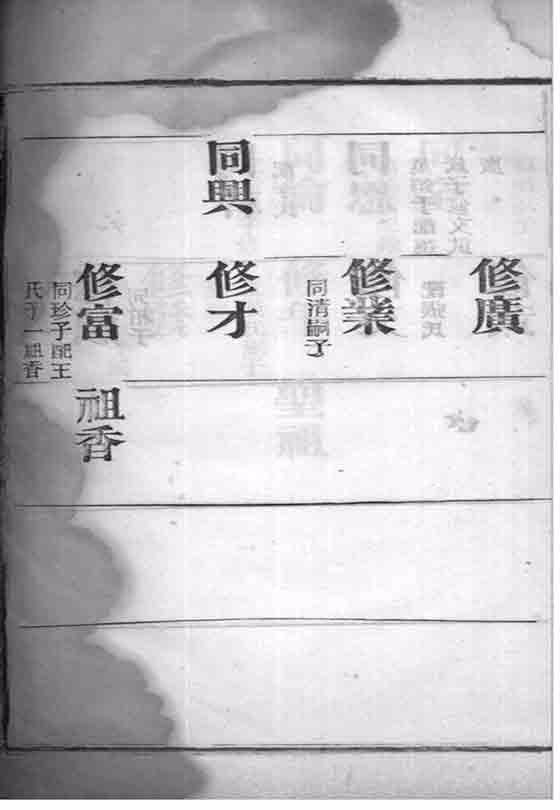 修廣
修業
同清嗣子
同興
修才
修富
同珍子配王
氏子一祖香
祖香